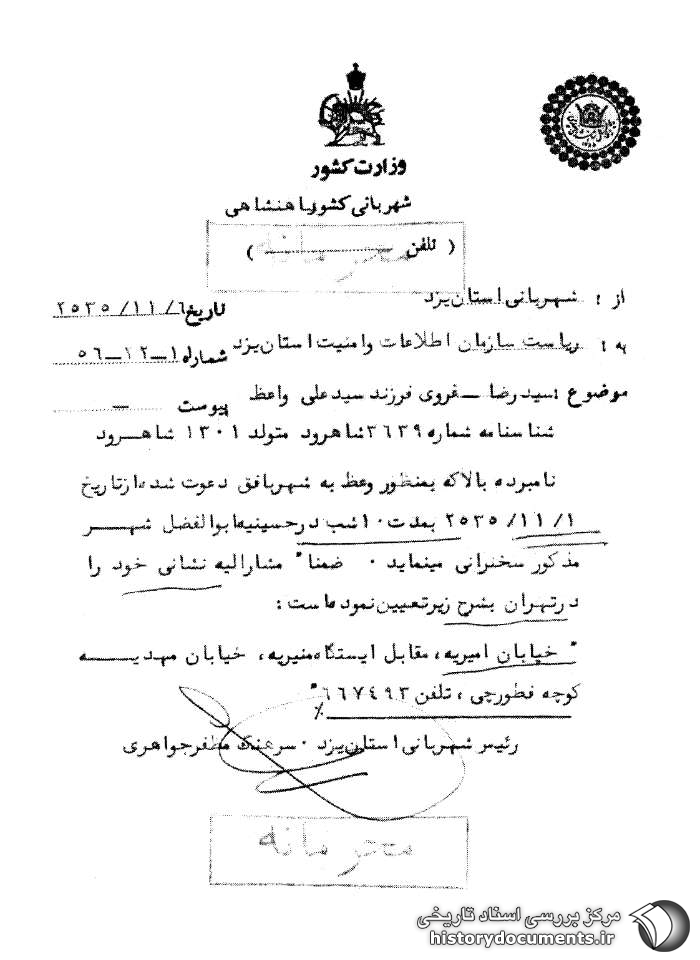 وزارت کشور
شهربانی کشور شاهنشاهی
( تلفن )
محرمانه
از : شهربانی استان یزد
تاریخ ۲۵۳۵/۱۱/۶
به : ریاست سازمان اطلاعات و امنیت استان یزد
شماره ۱-۱۲-۵۶
موضوع : سید رضا - غروی فرزند سید علی واعظ
پیوست -
شناسنامه شماره ۳۶۳۹ شاهرود متولد ۱۳۰۱ شاهرود
نامبرده بالا که بمنظور وعظ به شهر بافق دعوت شده از تاریخ
۲۵۳۵/۱۱/۱ بمدت ۱۰ شب در حسینیه ابوالفضل شهر
مذکور سخنرانی مینماید . ضمنا" مشارالیه نشانی خود را
در تهران بشرح زیر تعیین نموده است :
" خیابان امیریه ، مقابل ایستگاه منیریه ، خیابان مهدیه
کوچه فطورچی ، تلفن ۶۶۷۴۹۳ "
٪
رئیس شهربانی استان یزد . سرهنگ مظفر جواهری
محرمانه
مرکز بررسی اسناد تاریخی
historydocuments.ir